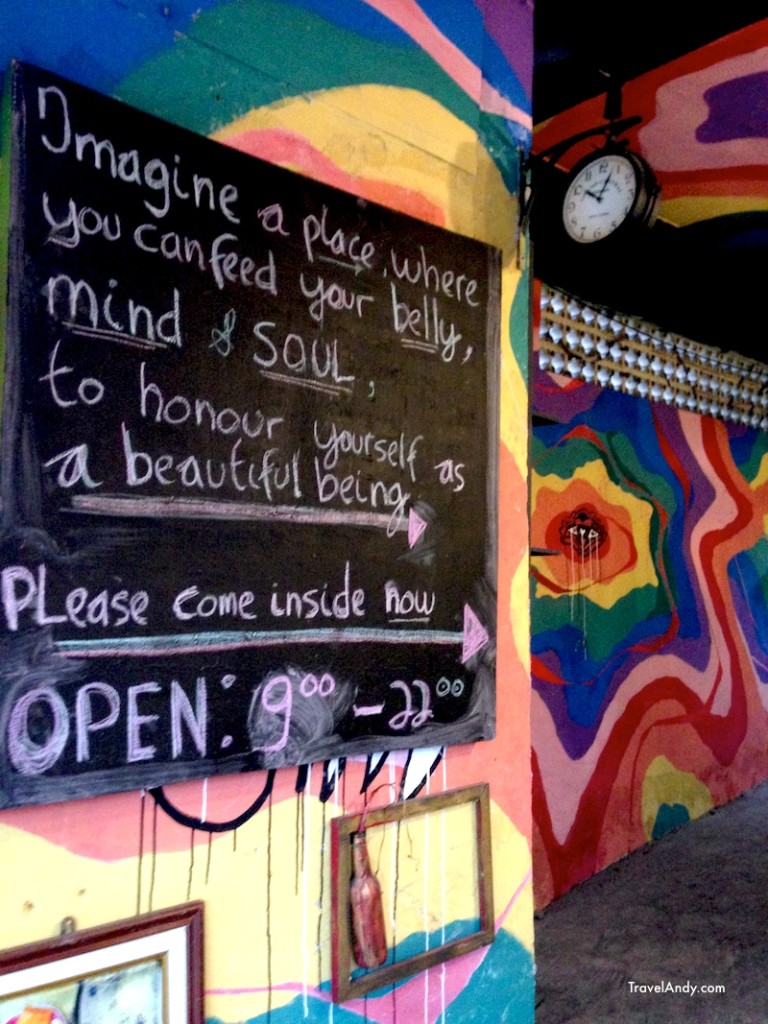 Imagine a place, where
you can feed your belly,
mind & SOUL,
to honour yourself as
a beautiful being
PLease come inside now
OPEN: 9⁰⁰ – 22⁰⁰
TravelAndy.com